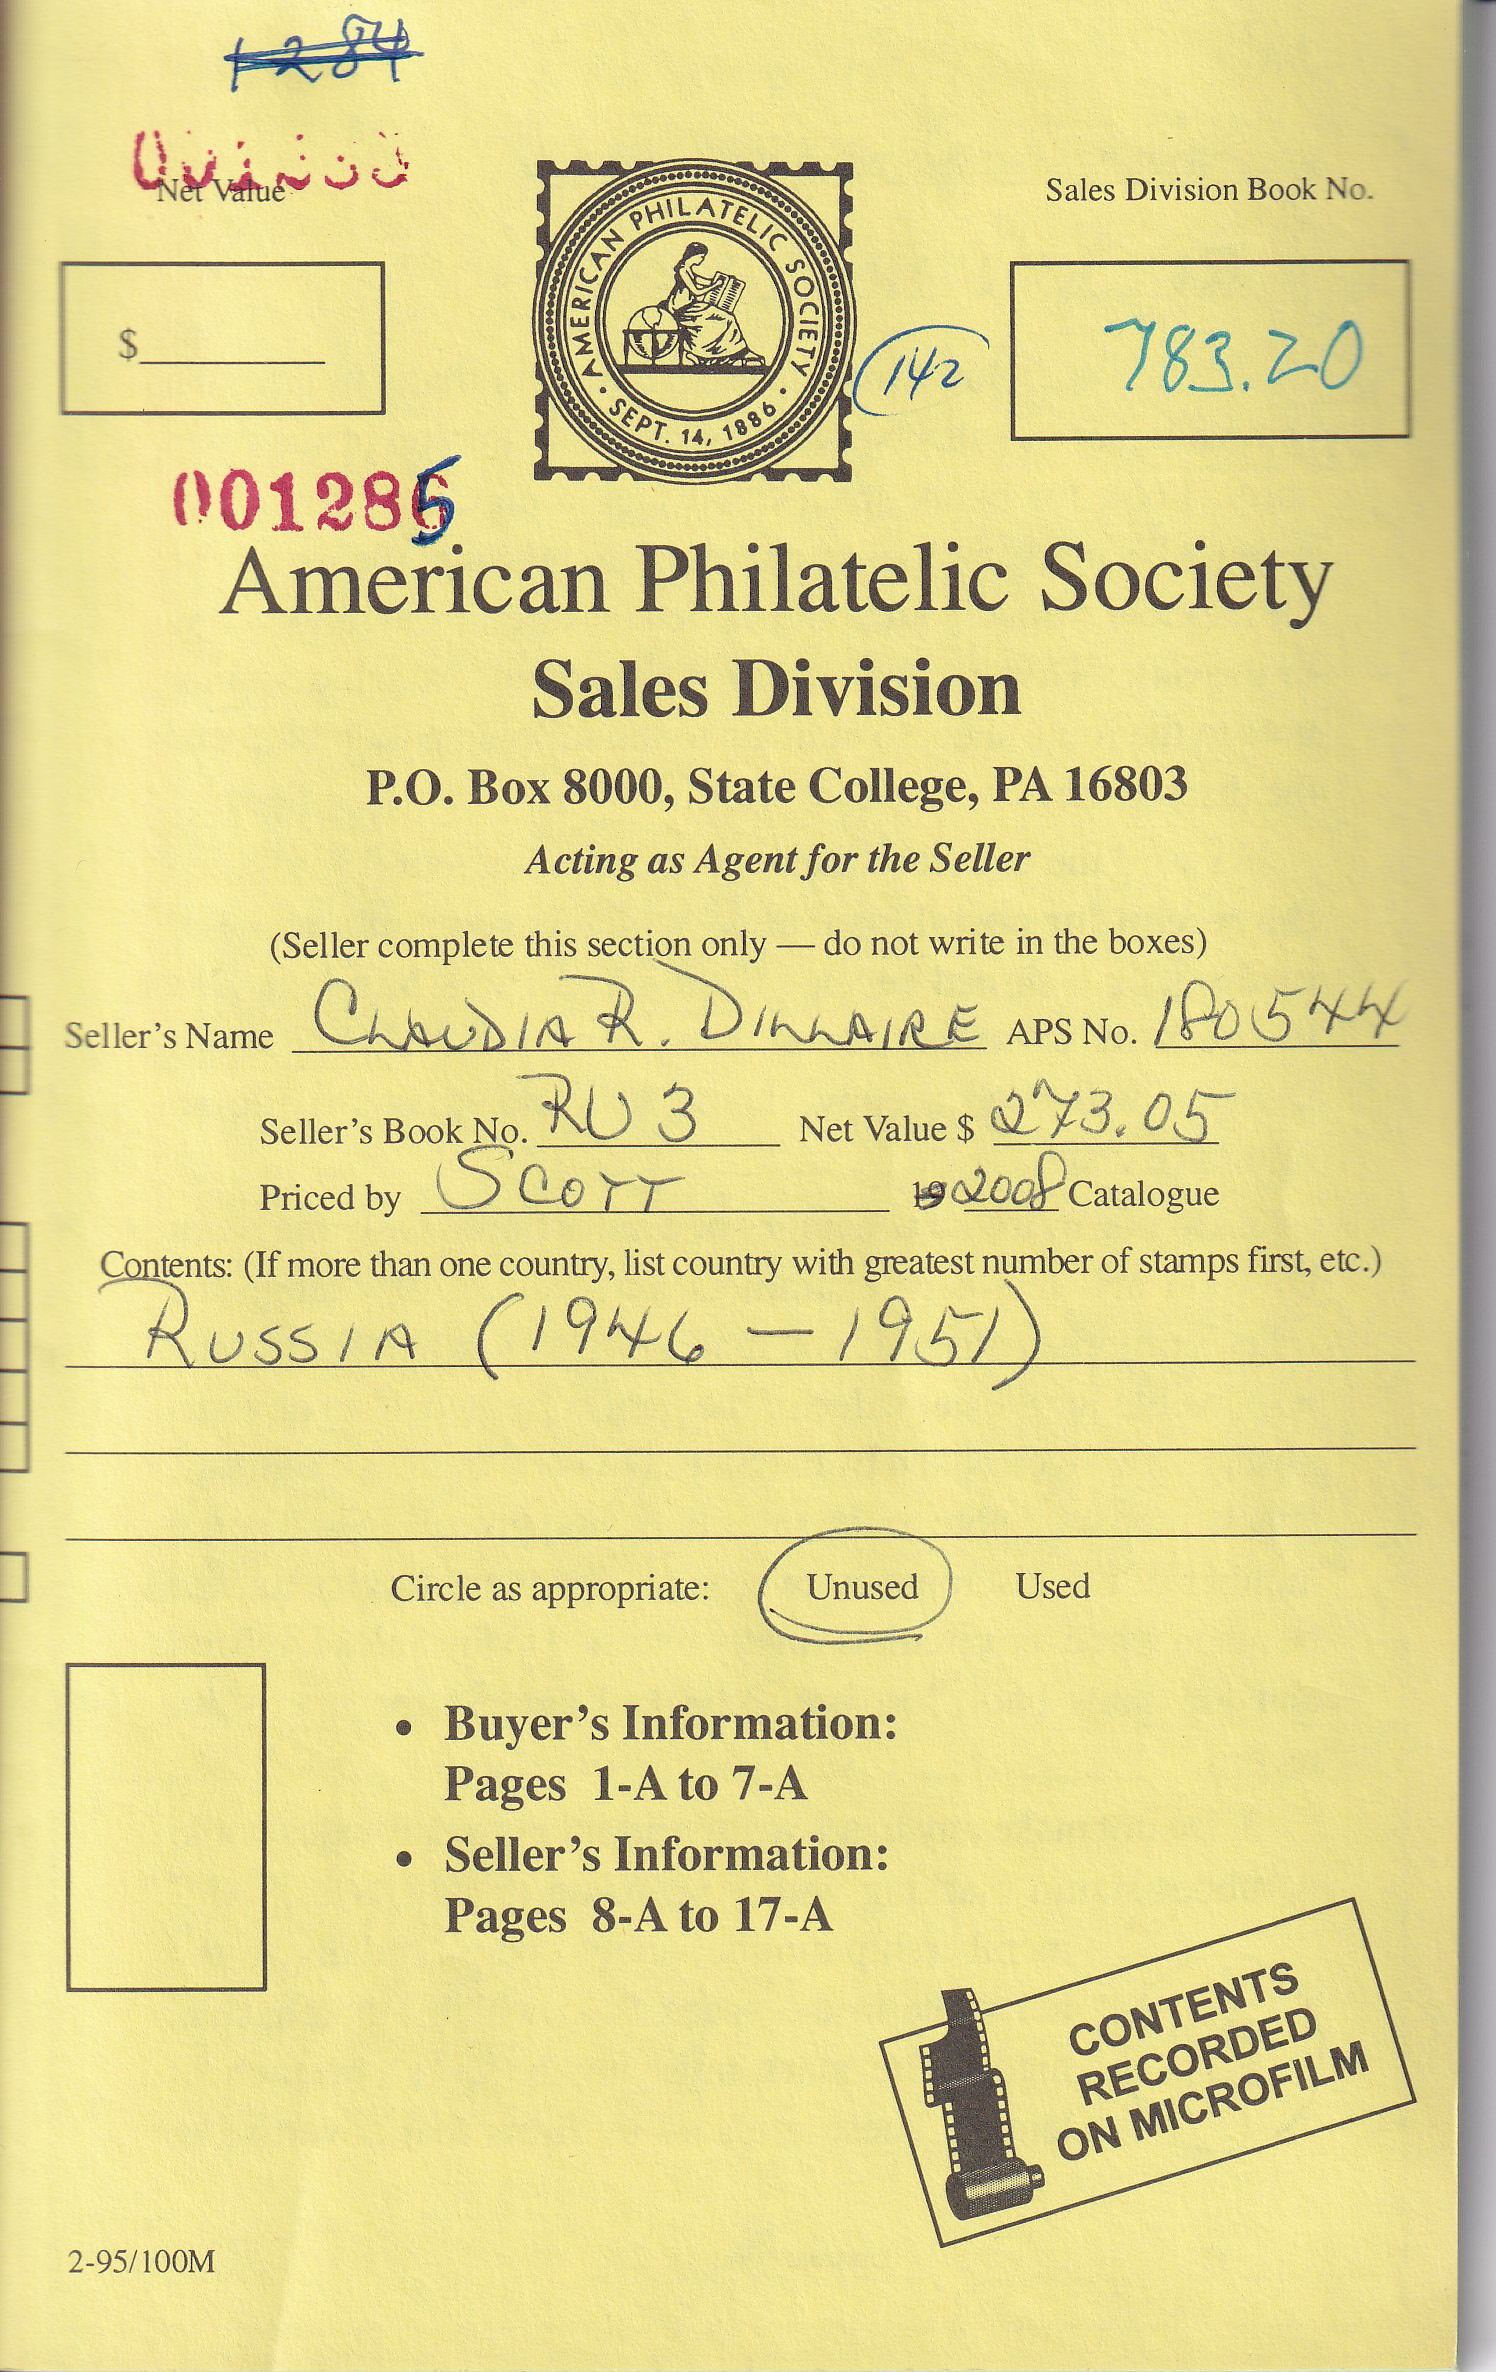 1284
Net Value
Sales Division Book No.
AMERICAN PHILATELIC SOCIETY
• SEPT. 14, 1886 •
$
142
783.20
001285
American Philatelic Society
Sales Division
P.O. Box 8000, State College, PA 16803
Acting as Agent for the Seller
(Seller complete this section only — do not write in the boxes)
Seller's Name CLAUDIA R. DILLAIRE APS No. 180544
Seller's Book No. RU 3 Net Value $ 273.05
Priced by SCOTT 19 2008 Catalogue
Contents: (If more than one country, list country with greatest number of stamps first, etc.)
RUSSIA (1946 — 1951)
Circle as appropriate: Unused Used
• Buyer's Information:
Pages 1-A to 7-A
• Seller's Information:
Pages 8-A to 17-A
CONTENTS
RECORDED
ON MICROFILM
2-95/100M